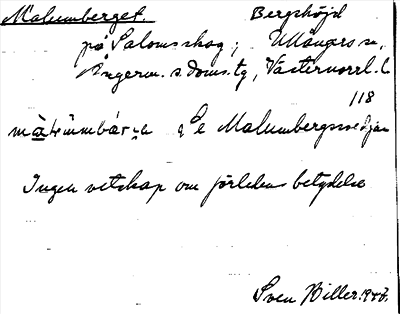 Malumberget. Bergshöjd
på Saloms skog, Ullångers sn,
Ångerm. s. doms. tg, Västernorrl. l.
118
Se Malumbergsvedjan
Ingen vetskap om förledens betydelse
Sven Hiller. 1947.